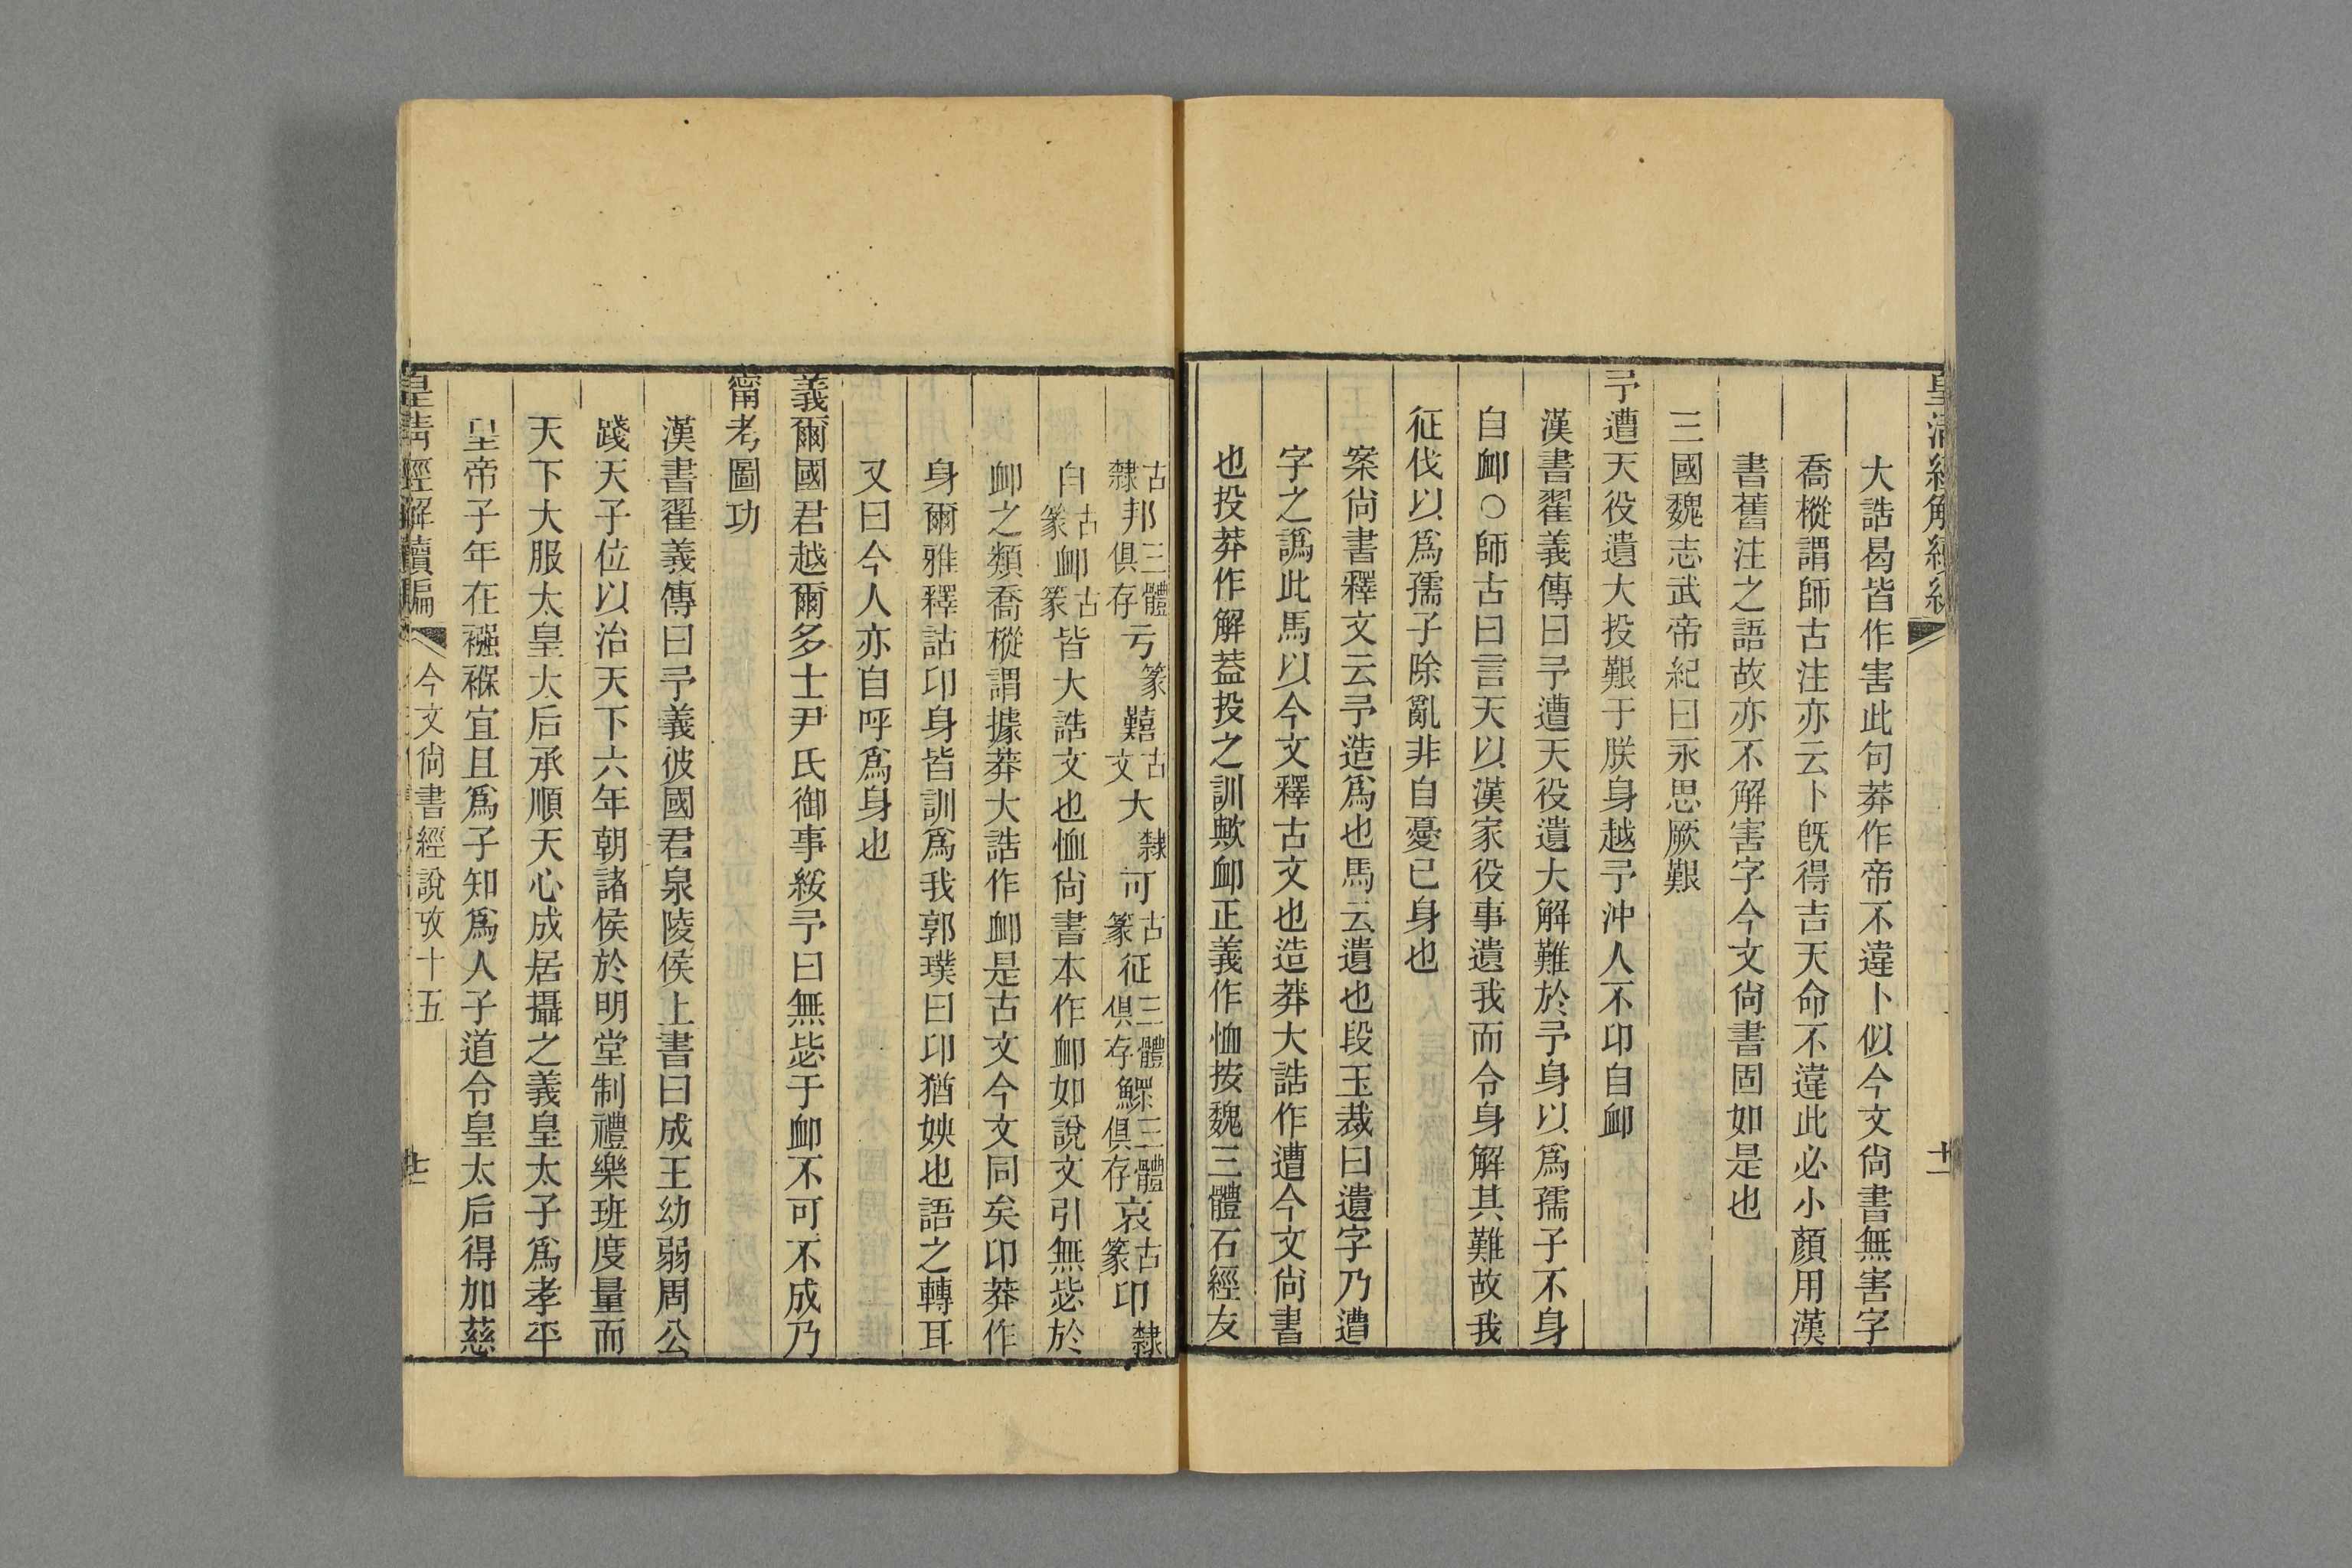 大誥曷皆作害此句莽作帝不違卜似今文尙書無害字
喬樅謂師古注亦云卜旣得吉天命不違此必小顏用漢
書舊注之語故亦不解害字今文尙書固如是也
三國魏志武帝紀曰永思厥艱
予遭天役遺大投艱于朕身越予沖人不卬自卹
漢書翟義傳曰予遭天役遺大解難於予身以爲孺子不身
自卹○師古曰言天以漢家役事遺我而令身解其難故我
征伐以爲孺子除亂非自憂已身也
案尙書釋文云予造爲也馬云遺也段玉裁曰遺字乃遭
字之譌此馬以今文釋古文也造莽大誥作遭今文尙書
也投莽作解葢投之訓歟卹正義作恤按魏三體石經友
古隸邦三體俱存亏篆囏古文大隸可古篆征三體俱存鰥三體俱存哀古篆卬隸
自古篆卹古篆皆大誥文也恤尙書本作卹如說文引無毖於
卹之類喬樅謂據莽大誥作卹是古文今文同矣卬莽作
身爾雅釋詁卬身皆訓爲我郭璞曰卬猶姎也語之轉耳
又曰今人亦自呼爲身也
義爾國君越爾多士尹氏御事綏予曰無毖于卹不可不成乃
甯考圖功
漢書翟義傳曰予義彼國君泉陵侯上書曰成王幼弱周公
踐天子位以治天下六年朝諸侯於明堂制禮樂班度量而
天下大服太皇太后承順天心成居攝之義皇太子爲孝平
皇帝子年在襁褓宜且爲子知爲人子道令皇太后得加慈
皇淸經解續編
今文尙書經說攷十五